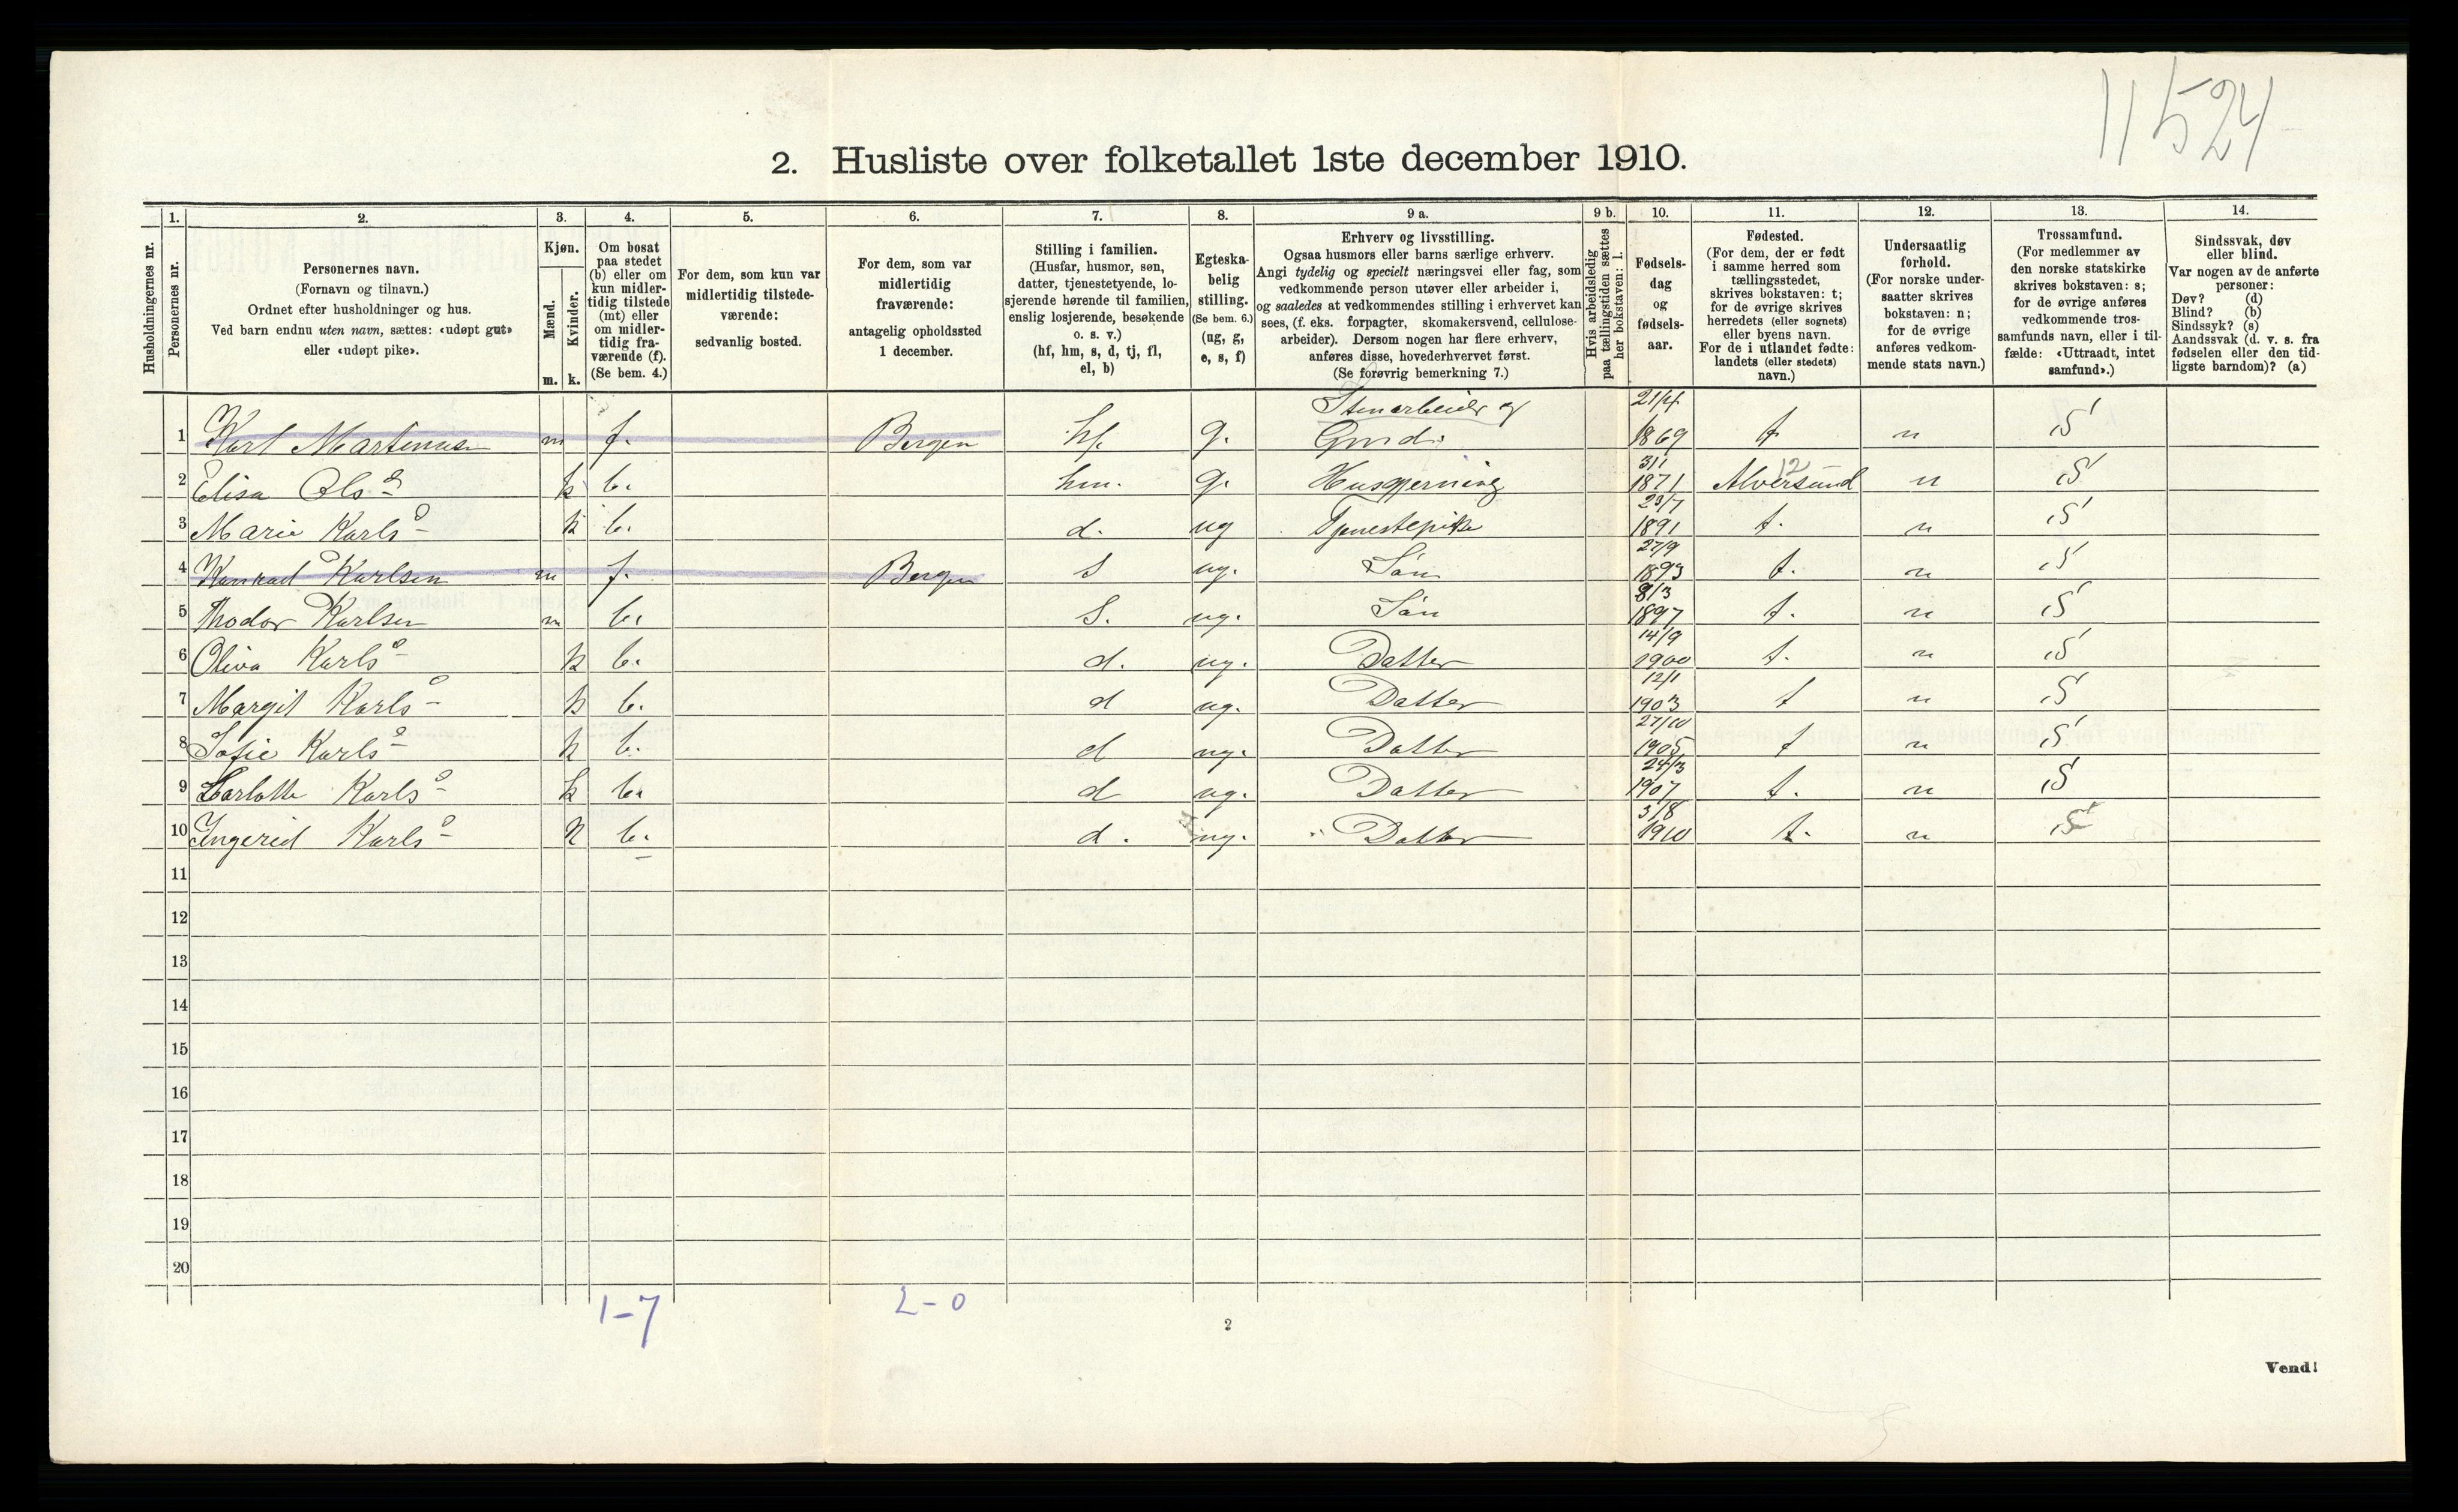 11524
2. Husliste over folketallet 1ste december 1910.
1. 2. 3. 4. 5. 6. 7. 8. 9 a. 9 b. 10. 11. 12. 13. 14.
Husholdningernes nr.
Personernes nr.
Personernes navn.
(Fornavn og tilnavn.)
Ordnet efter husholdninger og hus.
Ved barn endnu uten navn, sættes: «udøpt gut»
eller «udøpt pike».
Kjøn.
Mænd.
Kvinder.
m. k.
Om bosat
paa stedet
(b) eller om
kun midler-
tidig tilstede
(mt) eller
om midler-
tidig fra-
værende (f).
(Se bem. 4.)
For dem, som kun var
midlertidig tilstede-
værende:
sedvanlig bosted.
For dem, som var
midlertidig
fraværende:
antagelig opholdssted
1 december.
Stilling i familien.
(Husfar, husmor, søn,
datter, tjenestetyende, lo-
sjerende hørende til familien,
enslig losjerende, besøkende
o. s. v.)
(hf, hm, s, d, tj, fl,
el, b)
Egteska-
belig
stilling.
(Se bem. 6.)
(ug, g,
e, s, f)
Erhverv og livsstilling.
Ogsaa husmors eller barns særlige erhverv.
Angi tydelig og specielt næringsvei eller fag, som
vedkommende person utøver eller arbeider i,
og saaledes at vedkommendes stilling i erhvervet kan
sees, (f. eks. forpagter, skomakersvend, cellulose-
arbeider). Dersom nogen har flere erhverv,
anføres disse, hovederhvervet først.
(Se forøvrig bemerkning 7.)
Hvis arbeidsledig
paa tællingstiden sættes
her bokstaven: l.
Fødsels-
dag
og
fødsels-
aar.
Fødested.
(For dem, der er født
i samme herred som
tællingsstedet,
skrives bokstaven: t;
for de øvrige skrives
herredets (eller sognets)
eller byens navn.
For de i utlandet fødte:
landets (eller stedets)
navn.)
Undersaatlig
forhold.
(For norske under-
saatter skrives
bokstaven: n;
for de øvrige
anføres vedkom-
mende stats navn.)
Trossamfund.
(For medlemmer av
den norske statskirke
skrives bokstaven: s;
for de øvrige anføres
vedkommende tros-
samfunds navn, eller i til-
fælde: «Uttraadt, intet
samfund».)
Sindssvak, døv
eller blind.
Var nogen av de anførte
personer:
Døv? (d)
Blind? (b)
Sindssyk? (s)
Aandssvak (d. v. s. fra
fødselen eller den tid-
ligste barndom)? (a)
Stenarbeider og 21/4
1 Karl Martinusen m f. Bergen hf. g. Gmd. 1869 t. n S
3/1 12
2 Elisa Olsd k b. hm. g. Husgjerning 1871 Alversund n S
23/7
3 Marie Karlsd k b. d. ug Tjenestepike 1891 t. n S
27/9
4 Konrad Karlsen m f. Bergen S ug. Søn 1893 t. n S
8/3
5 Thodor Karlsen m b. S. ug. Søn 1897 t. n S
14/9
6 Oliva Karlsd k b. d. ug. Datter 1900 t. n S
12/1
7 Margit Karlsd k b. d ug. Datter 1903 t n S
27/10
8 Sofie Karlsd k b. d ug. Datter 1905 t n S
24/3
9 Karlotte Karlsd k b. d ug. Datter 1907 t. n S
3/8
10 Ingerid Karlsd k b. d. ug. Datter 1910 t. n S
11
12
13
14
15
16
17
18
19
20
1-7 2-0
2
Vend!